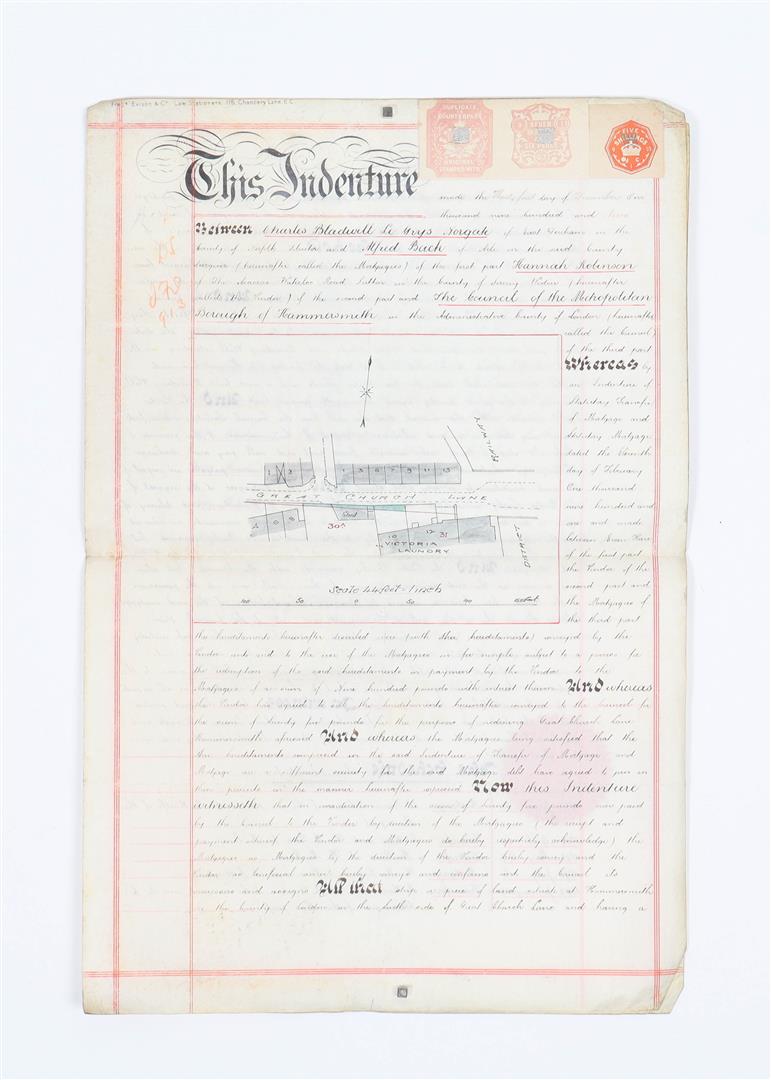 & Co. Law Stationers, 116, Chancery Lane, E.C.
DUPLICATE OR COUNTERPART
ORIGINAL STAMPED WITH
SIX PENCE
FIVE SHILLINGS
This Indenture
made the Thirty first day of December One
thousand nine hundred and
Between Charles Bladwell Le Grys Norgate of East Dereham in the
County of Norfolk and Alfred Back of in the said County
Surgeon (hereinafter called the Mortgagees) of the first part Hannah Robinson
of Waterloo Road Sutton in the County of Surrey Widow (hereinafter
called the Vendor) of the second part and The Council of the Metropolitan
Borough of Hammersmith in the Administrative County of London (hereinafter
called the Council)
of the third part
Whereas by
an Indenture of
Statutory Transfer
of Mortgage and
Statutory Mortgage
dated the
day of February
One thousand
nine hundred and
one and made
between
of the first part
the Vendor of the
second part and
the Mortgagees of
the third part
RAILWAY
1 2 1 3 5 7 9 11 13
GREAT CHURCH LANE
Shed
30A
10 12 31
VICTORIA LAUNDRY
DISTRICT
Scale 44 feet = 1 inch
50 0 50
the hereditaments hereinafter described were (with other hereditaments) conveyed by the
Vendor unto and to the use of the Mortgagees in fee simple subject to a proviso for
the redemption of the said hereditaments on payment by the Vendor to the
Mortgagees of a sum of Nine hundred pounds with interest thereon And whereas
the Vendor has agreed to sell the hereditaments hereinafter conveyed to the Council for
the sum of twenty five pounds for the purpose of widening Great Church Lane
Hammersmith aforesaid And whereas the Mortgagees being satisfied that the
hereditaments comprised in the said Indenture of Transfer of Mortgage and
Mortgage are a sufficient security for the said Mortgage debt have agreed to join in
these presents in the manner hereinafter expressed Now this Indenture
witnesseth that in consideration of the sum of twenty five pounds now paid
by the Council to the Vendor by direction of the Mortgagees (the receipt and
payment whereof the Vendor and Mortgagees do hereby respectively acknowledge) the
Mortgagees as Mortgagees by the direction of the Vendor hereby convey and the
Vendor as beneficial owner hereby conveys and confirms unto the Council its
successors and assigns All that strip or piece of land situate at Hammersmith
in the County of London on the South side of Great Church Lane and having a